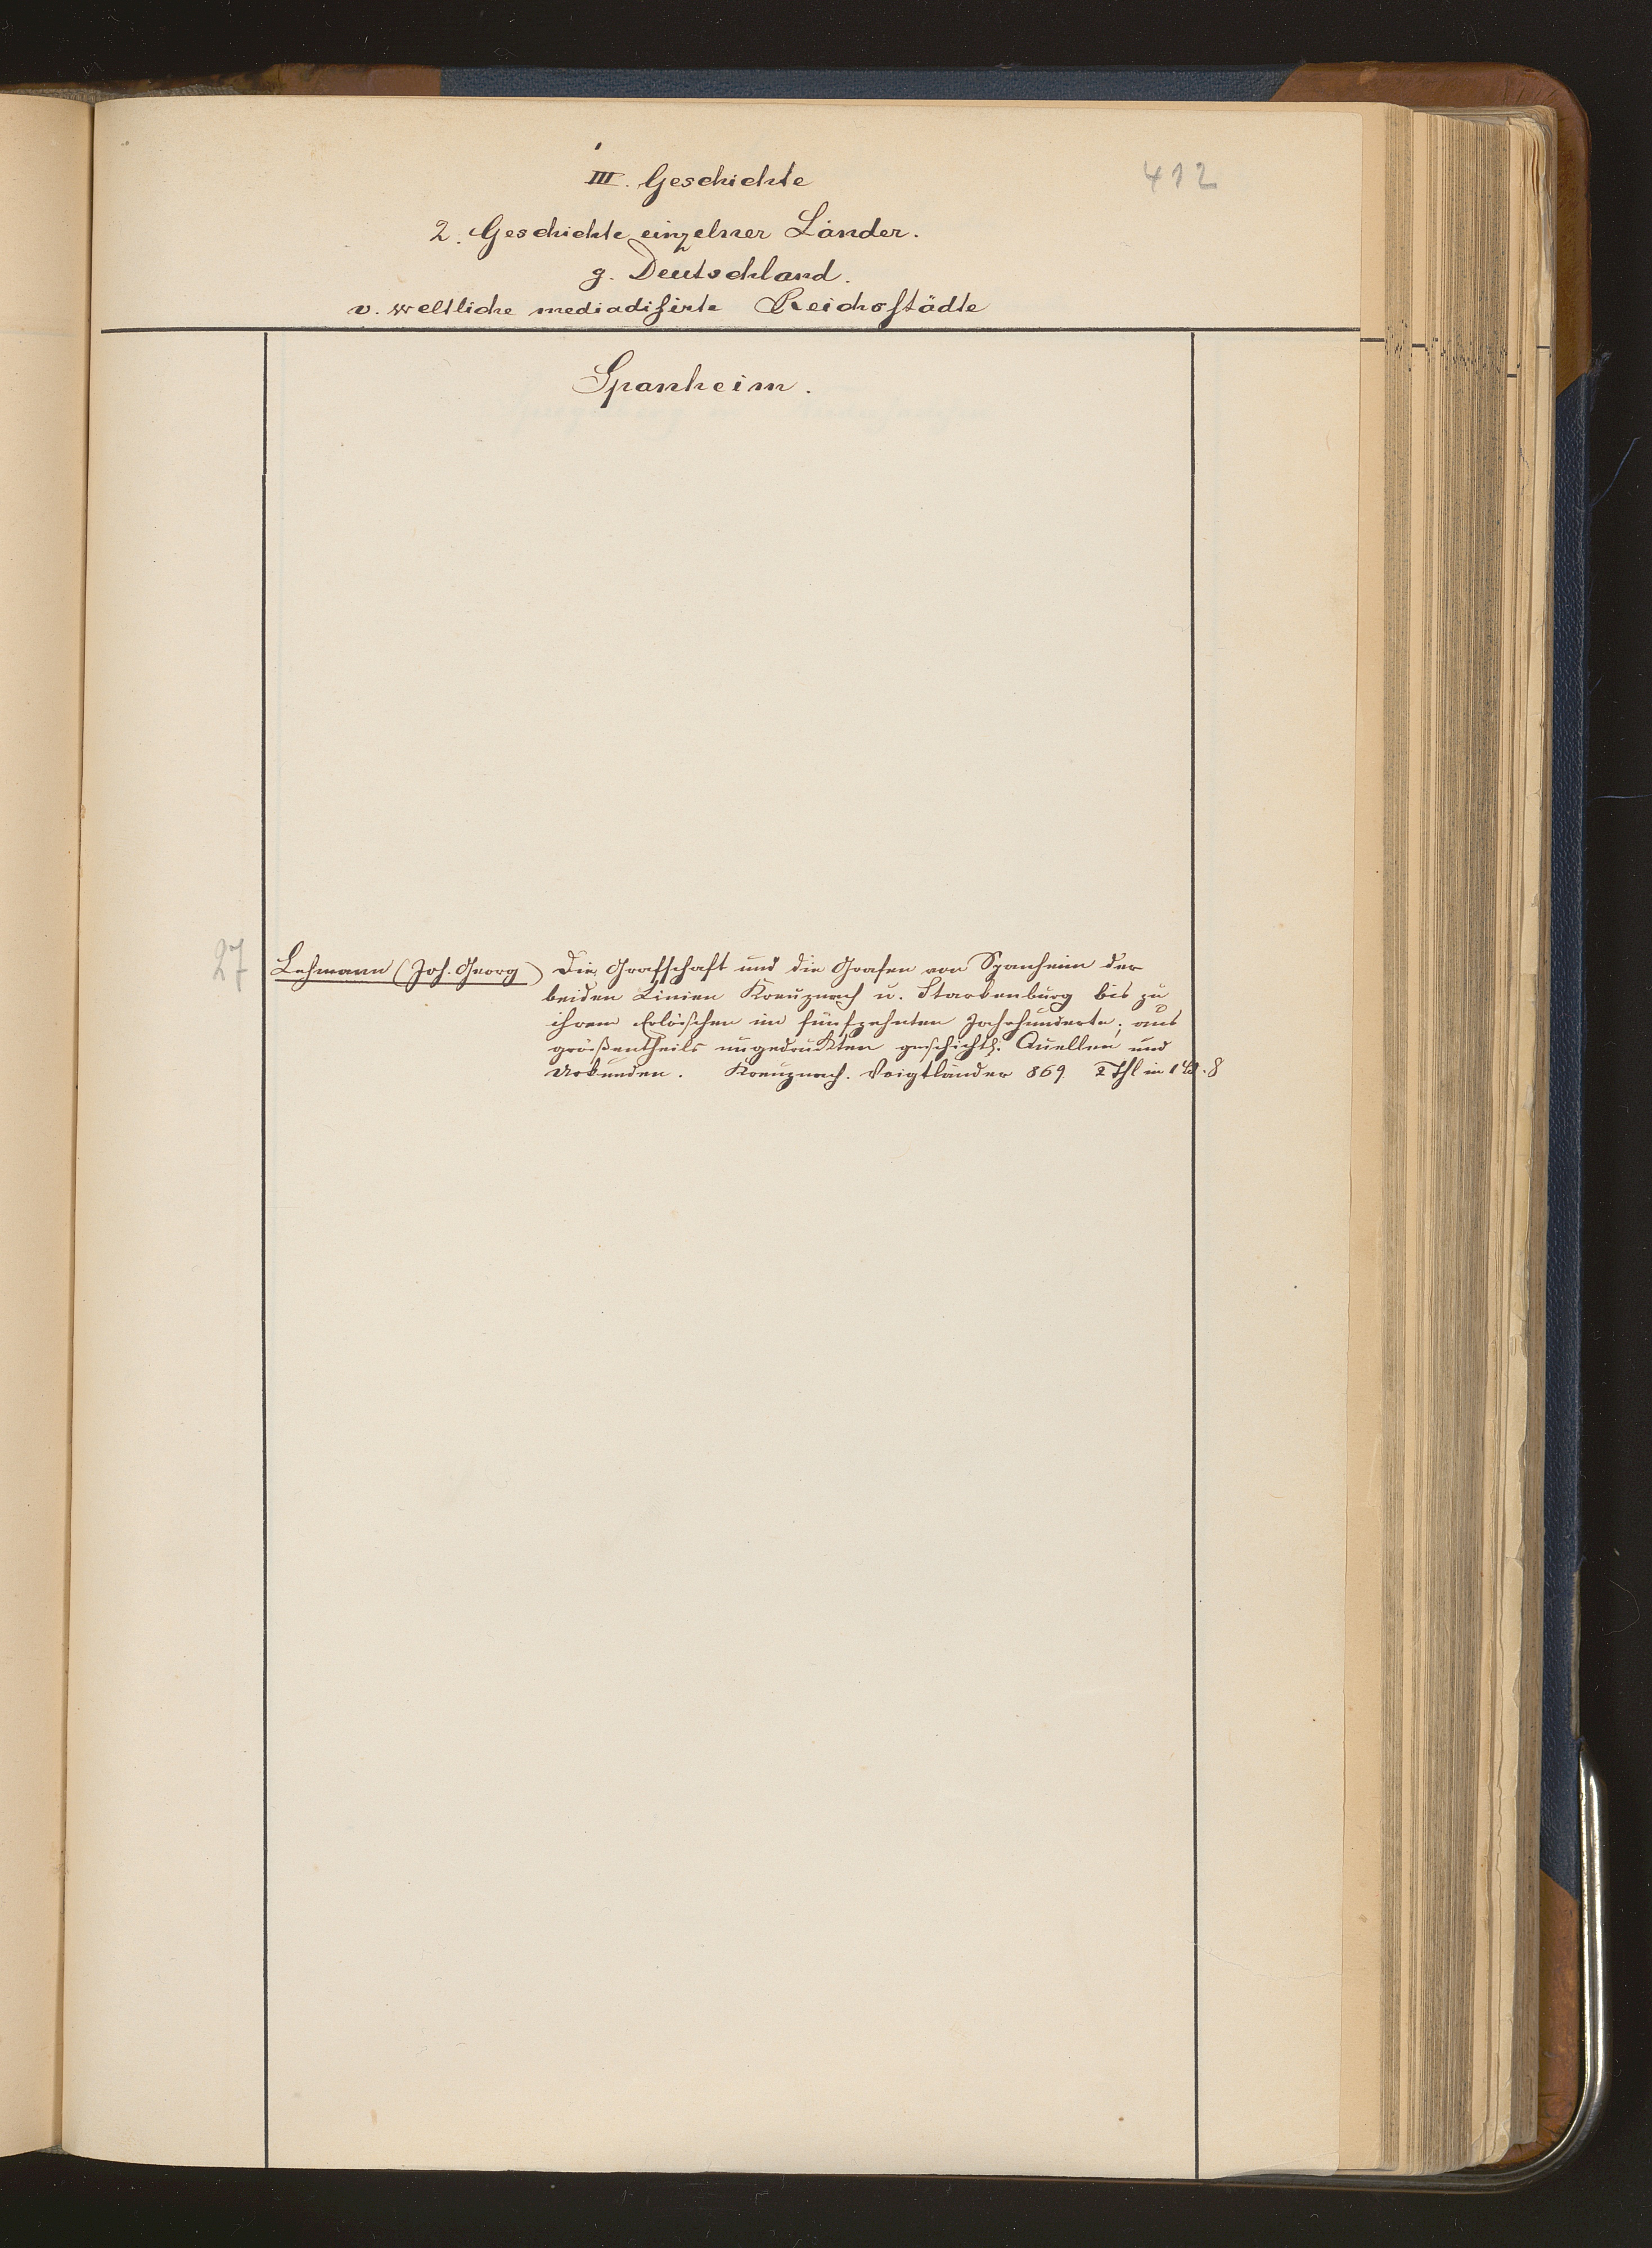 III. Geschichte
412
2. Geschichte einzelner Länder.
g. Deutschland.
v. weltliche mediadisirte Reichsstädte
Spanheim.
27
Lehmann (Joh. Georg) Die Grafschaft und die Grafen von Spanheim der
beiden Linien Kreuznach u. Starkenburg bis zu
ihrem Erlöschen im fünfzehnten Jahrhunderte; aus
größentheils ungedruckten geschichtl. Quellen und
Urkunden. Kreuznach. Voigtländer 869. 2 Thl in 1 Bd. 8